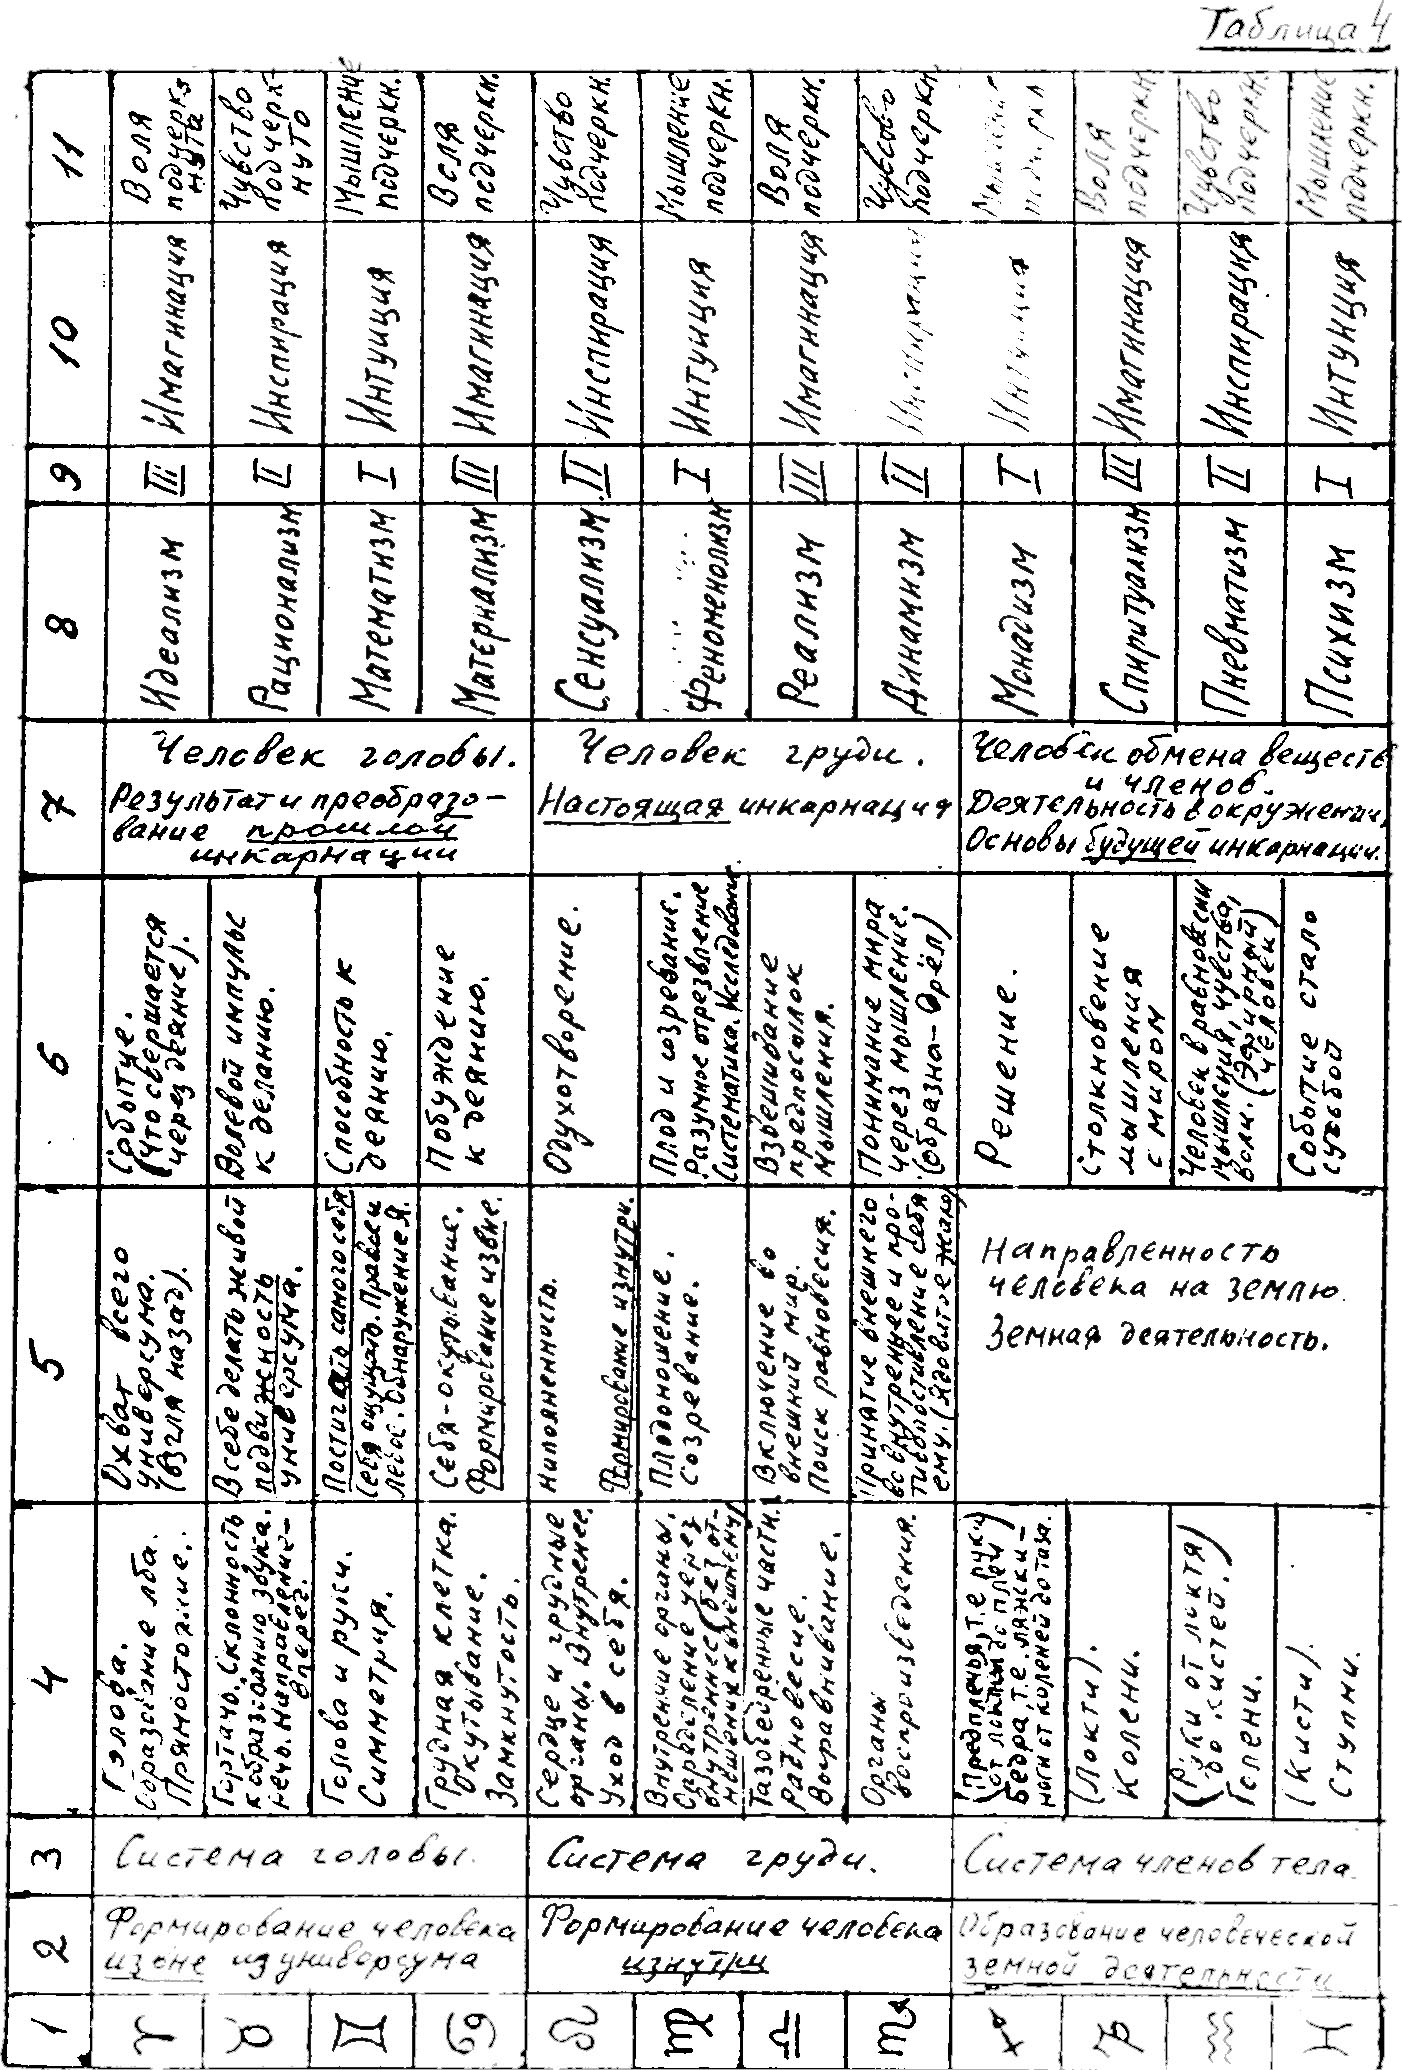 Таблица 4
11
Воля
подчеркз
нута
Чувство
подчерк-
нуто
Мышление
подчеркн.
Воля
подчеркн.
Чувство
подчеркн.
Мышление
подчеркн.
Воля
подчеркн.
Чувство
подчеркн.
Воля
подчеркн.
Чувство
подчеркн.
Мышление
подчеркн.
10
Имагинация
Инспирация
Интуиция
Имагинация
Инспирация
Интуиция
Имагинация
Инспирация
Интуиция
Имагинация
Инспирация
Интуиция
9
III
II
I
III
II
I
III
II
I
III
II
I
8
Идеализм
Рационализм
Математизм
Материализм
Сенсуализм
Феноменолизм
Реализм
Динамизм
Монадизм
Спиритуализм
Пневматизм
Психизм
7
Человек головы.
Результат и преобразо-
вание прошлой
инкарнации
Человек груди.
Настоящая инкарнация
Человек обмена веществ
и членов.
Деятельность в окружении,
Основы будущей инкарнации.
6
Событие.
(Что свершается
через деяние).
Волевой импульс
к деланию.
Способность к
деянию.
Побуждение
к деянию.
Одухотворение.
Плод и созревание.
Разумное отрезвление
Систематика. Исследование
Взвешивание
предпосылок
мышления.
Понимание мира
через мышление.
(образна- Орёл)
Решение.
Столкновение
мышления
с миром
Человек в равновесии
мышления, чувства,
воли. (Эфирный
человек)
Событие стало
судьбой
5
Охват всего
универсума.
(взгля назад).
В себе делать живой
подвижность
универсума.
Постигать самого себя
Себя ощущ. Правое и
левое. Обнаружение я.
Себя-окутывание.
Формирование извне.
Наполненность.
Формирование изнутри.
Плодоношение.
Созревание.
Включение во
внешний мир.
Поиск равновесия.
Принятие внешнего
во внутреннее и про-
тивопоставление себя
ему. (Ядовитое жало)
Направленность
человека на землю.
Земная деятельность.
4
Голова.
Образование лба.
Прямостояние.
Гортань. Склонность
к образованию звука.
Речь. Направление-
вперед.
Голова и руки.
Симметрия.
Грудная клетка.
Окутывание.
Замкнутость.
Сердце и грудные
органы. Внутренее.
Уход в себя.
Внутренние органы.
Определение через
внутреннее (без от-
ношения к внешнему)
Тазобедренные части.
Равновесие.
Выравнивание.
Органы
воспроизведения.
(Предплечья, т.е. руки
от локтя до плеч)
Бедра, т.е. ляжки-
ноги от коленей до таза.
(Локти).
Колени.
(Руки от локтя
до кистей.)
Голени.
(Кисти).
Ступни.
3
Система головы.
Система груди.
Система членов тела.
2
Формирование человека
извне из универсума
Формирование человека
изнутри
Образование человеческой
земной деятельности
1
♈
♉
♊
♋
♌
♍
♎
♏
♐
♑
♒
♓